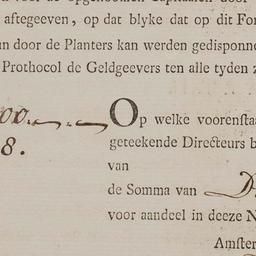 aftegeeven, op dat blyke dat op dit For
door de Planters kan werden gedisponne
Prothocol de Geldgeevers ten alle tyden
Op welke voorenstaa
8.
geteekende Directeurs b
van
de Somma van
voor aandeel in deeze N
Amster